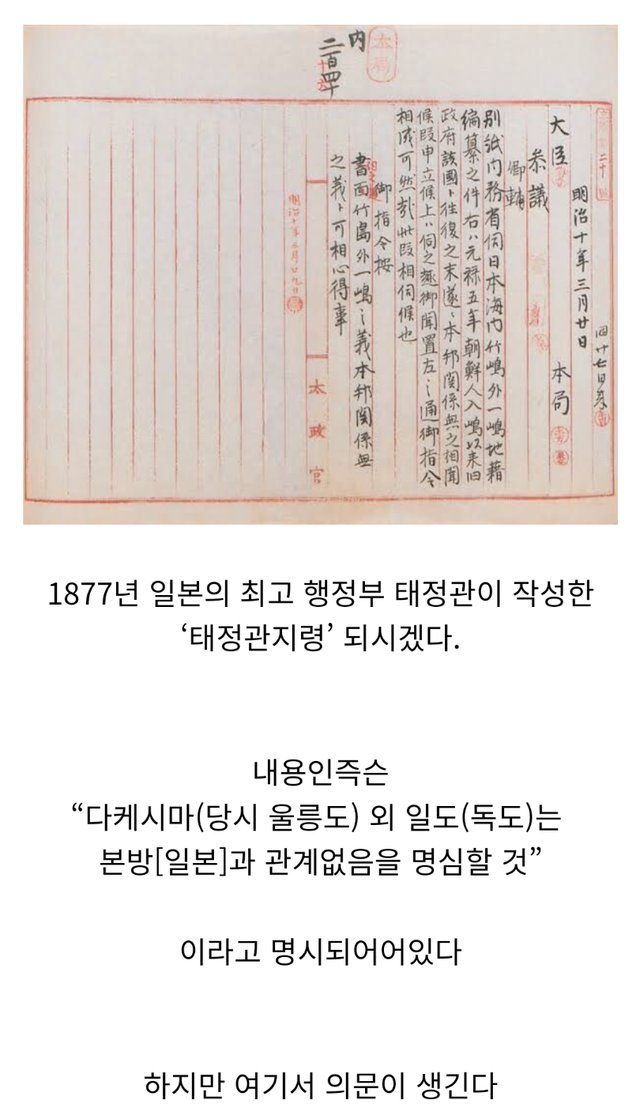 内
二百四十
明治十年三月廿日
大臣
本局
参議
卿輔
別紙内務省伺日本海内竹嶋外一嶋地籍
編纂之件右ハ元禄五年朝鮮人入嶋以来旧
政府該国ト往復之末遂ニ本邦関係無之相聞
候段申立候上ハ伺之趣御聞置左之通御指令
相成可然哉此段相伺候也
御指令按
書面竹島外一嶋之義本邦関係無
之義ト可相心得事
明治十年三月廿九日
太政官
1877년 일본의 최고 행정부 태정관이 작성한
‘태정관지령’ 되시겠다.
내용인즉슨
“다케시마(당시 울릉도) 외 일도(독도)는
본방[일본]과 관계없음을 명심할 것”
이라고 명시되어어있다
하지만 여기서 의문이 생긴다